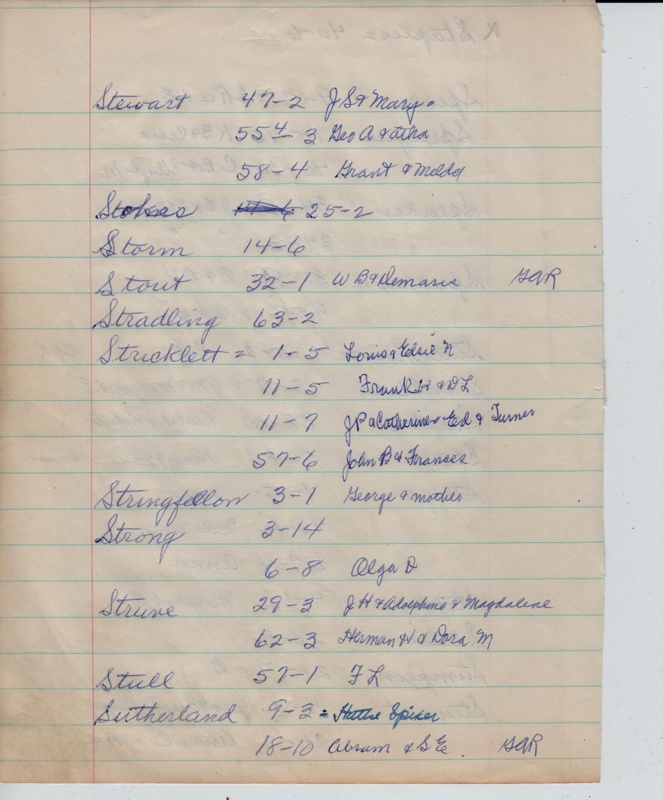 Stewart 47-2 J S & Mary
55 4-3 Geo A &
58-4 Grant &
Stokes 25-2
Storm 14-6
Stout 32-1 W B & Demaris GAR
Stradling 63-2
Stricklett = 1-5 Louis & Elsie N
11-5 Frank & D L
11-7 J P & Catherine & Ed & Turner
57-6 John B & Frances
Stringfellow 3-1 George & mother
Strong 3-14
6-8 Olga D
Struve 29-3 J H & Adolphine & Magdaline
62-3 Herman W & Dora M
Stull 57-1 F L
Sutherland 9-3 = Hattie Spiker
18-10 Abram & S E. GAR